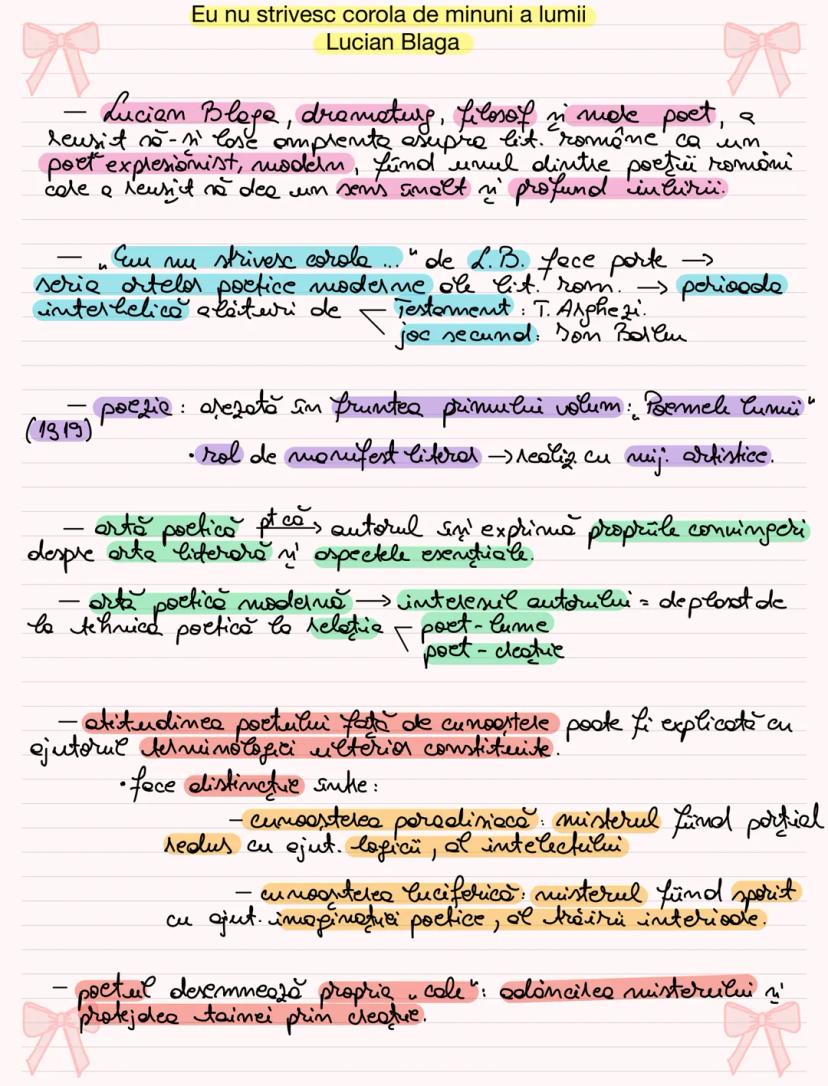 Eu nu strivesc corola de minuni a lumii
Lucian Blaga
— Lucian Blaga, dramaturg, filosof și mare poet, a
reușit să-și lase amprenta asupra lit. române ca un
poet expresionist, modern, fiind unul dintre poeții români
care a reușit să dea un sens înalt și profund iubirii.
— „Eu nu strivesc corola ..." de L.B. face parte →
seria artelor poetice moderne ale lit. rom. → perioada
interbelică alături de Testament: T. Arghezi.
joc secund: Ion Barbu
— poezie: așezată în fruntea primului volum: „Poemele luminii"
(1919)
• rol de manifest literar → realiz cu mij. artistice.
— artă poetică pt că → autorul își exprimă propriile convingeri
despre arta literară și aspectele esențiale.
— artă poetică modernă → interesul autorului = deplasat de
la tehnica poetică la relația poet-lume
poet - creație
— atitudinea poetului față de cunoaștere poate fi explicată cu
ajutorul terminologiei ulterior constituite.
• face distincție între:
— cunoașterea paradisiacă: misterul fiind parțial
redus cu ajut. logicii, al intelectului
— cunoașterea luciferică: misterul fiind sporit
cu ajut. imaginației poetice, al trăirii interioare.
— poetul desemnează propria „cale": adâncirea misterului și
protejarea tainei prin creație.